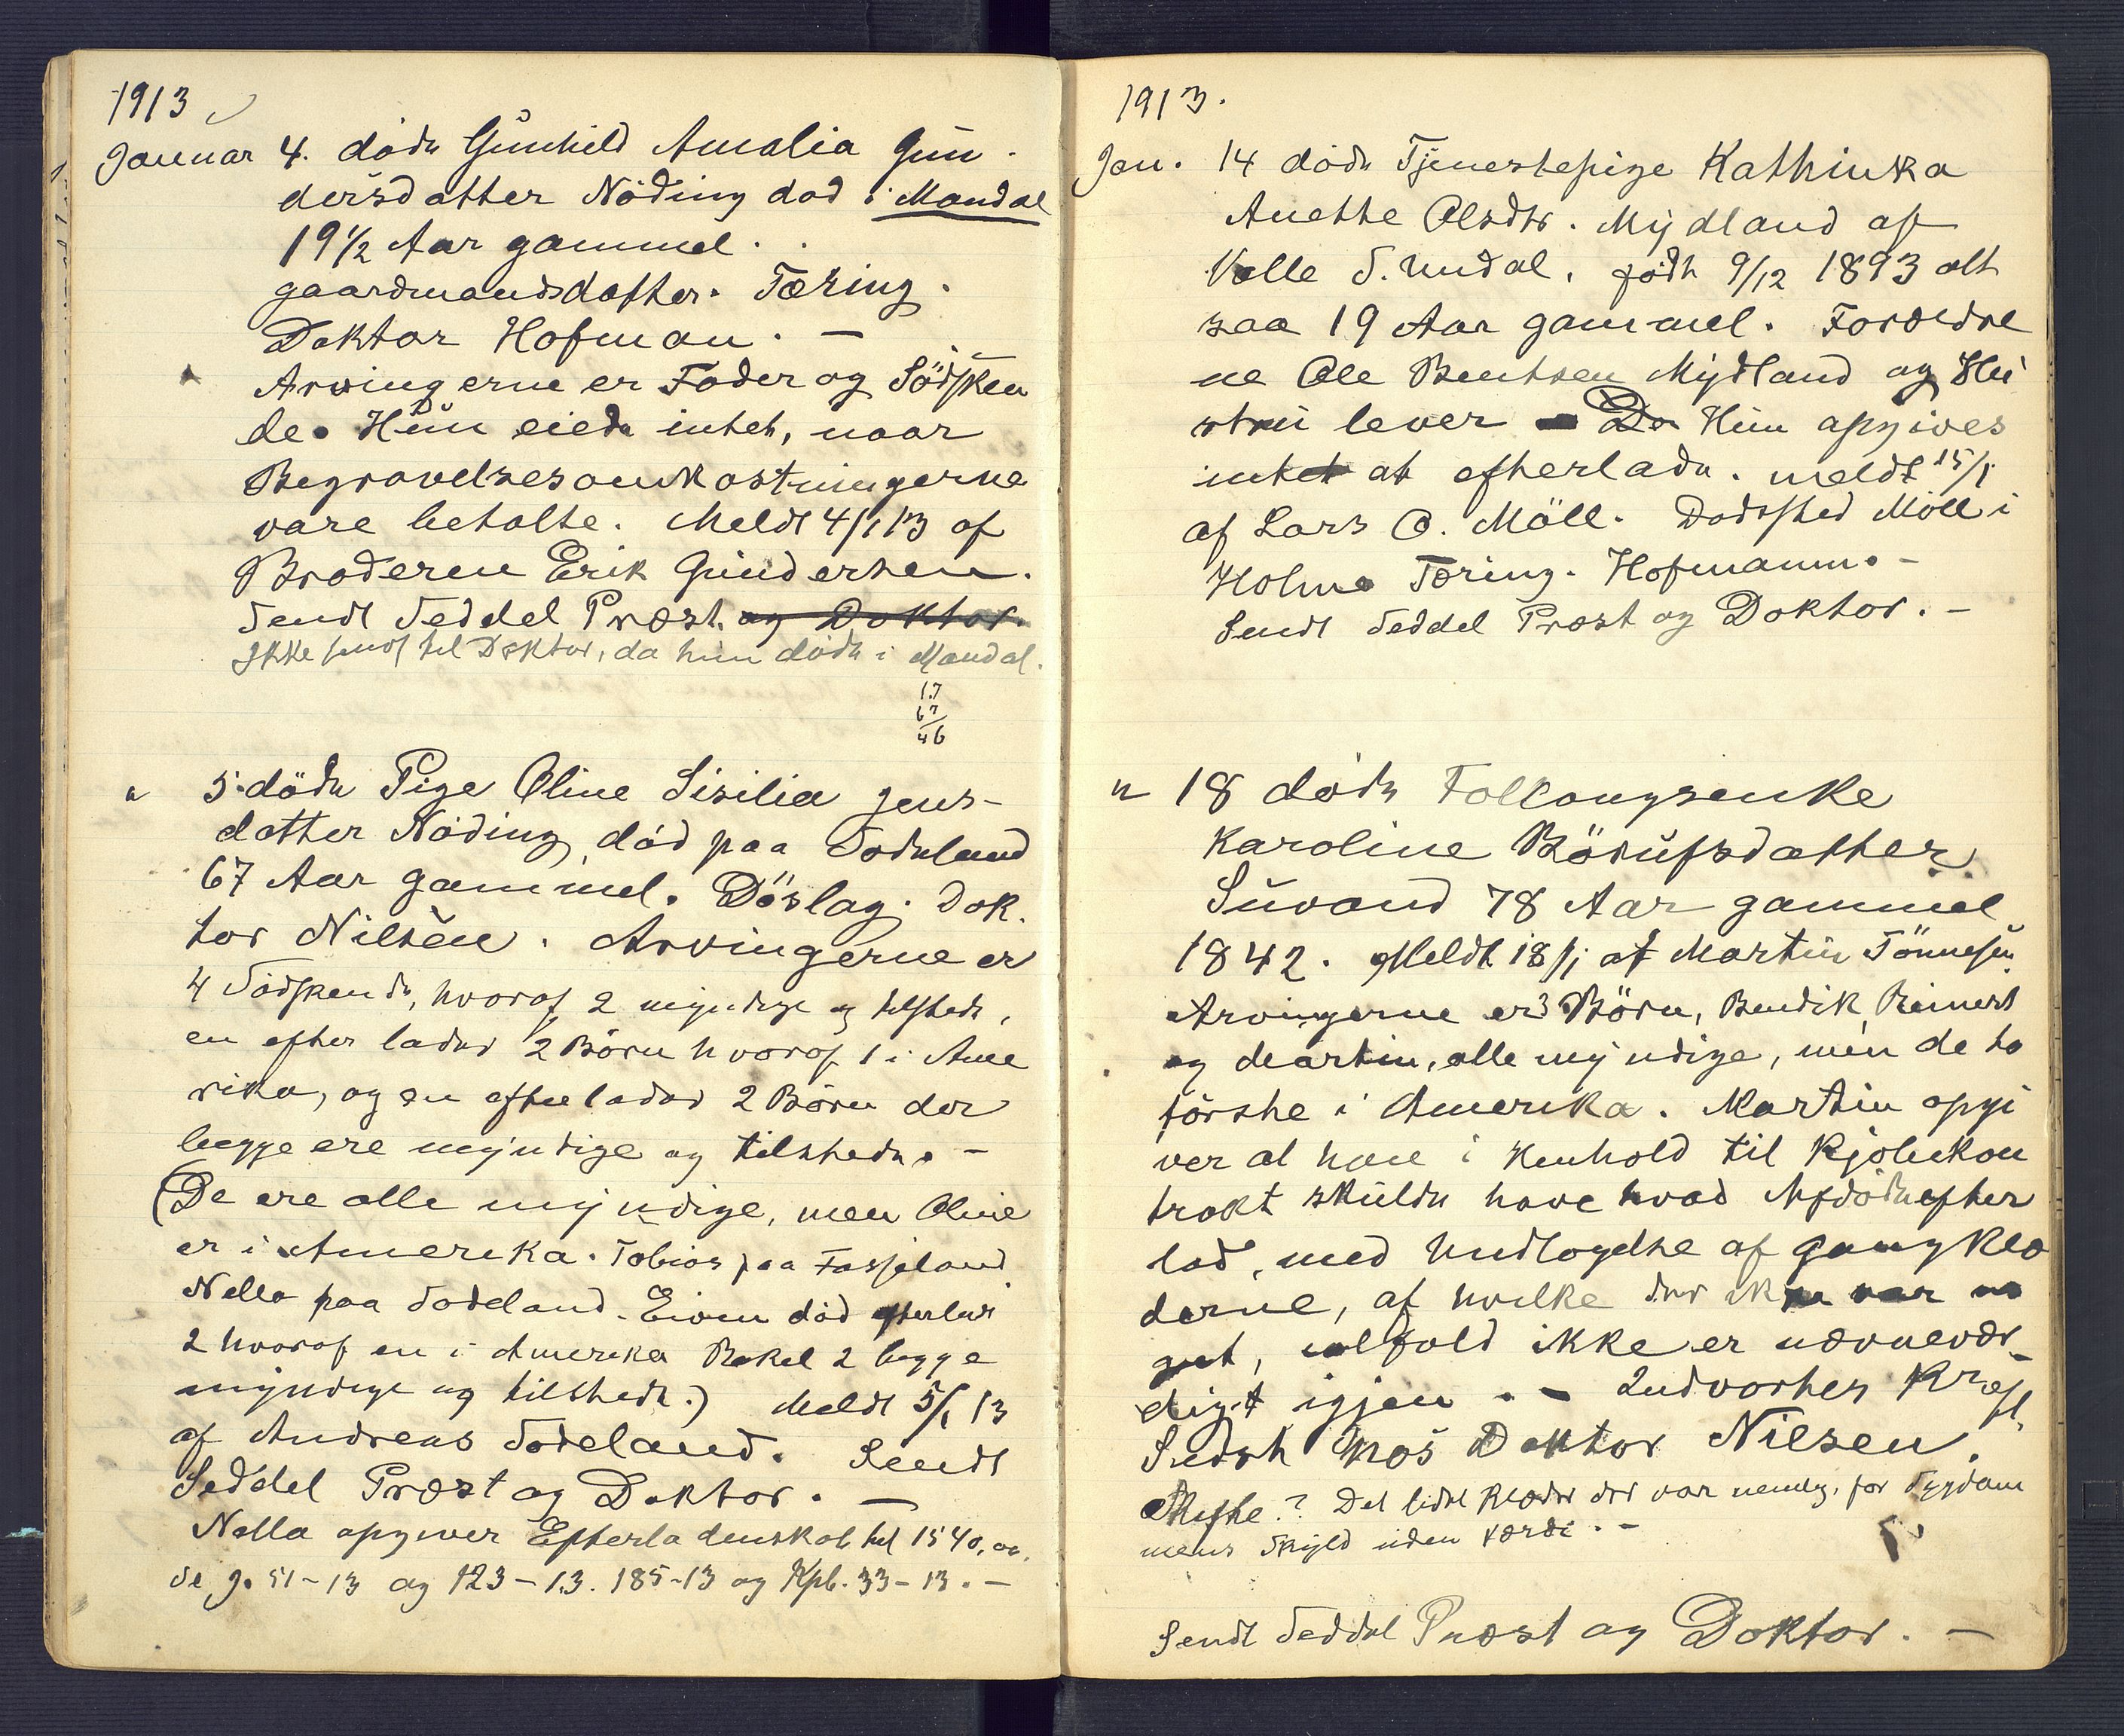 1913
Januar 4. döde Gunhild Amalia Gun-
dersdatter Nöding död i Mandal
19½ Aar gammel.
gaardmandsdatter. Tæring.
Doktor Hofman. —
Arvingerne er Fader og Södsken
de. Hun eiede intet, naar
Begravelsesomkostningerne
vare betalte. Meldt 4/1 13 af
Broderen Erik Gundersen.
Sendt Seddel Præst og Doktor.
Ikke sendt til Doktor, da hun döde i Mandal.
17
67
46
" 5. döde Pige Oline Sisilia Jens-
datter Nöding, död paa Sodeland
67 Aar gammel. Döslag. Dok.
tor Nilsen. Arvingerne er
4 Södskende, hvoraf 2 myndige og tilstede,
en efterlader 2 Börn hvoraf 1 i Ame
rika, og en efterlader 2 Börn der
begge ere myndige og tilstede. —
(De ere alle myndige, men Oline
er i Amerika. Tobias paa
Nella paa Sodeland. död efterlod
2 hvoraf en i Amerika Rakel 2 begge
myndige og tilstede.) Meldt 5/1 13
af Andreas Sodeland. Sendt
Seddel Præst og Doktor. —
Nella opgiver Efterladenskab til 1540,00.
Se J. 51-13 og 123-13. 185-13 og Kpb. 33-13. —
1913.
Jan. 14 döde Tjenestepige Kathinka
Anette Olsdtr. Mydland af
Valle S. Undal, född 9/12 1893 alt
saa 19 Aar gammel. Forældre
ne Ole Bentsen Mydland og Hu
stru lever Da Hun opgives
intet at efterlade. meldt 15/1
af Lars O. Möll. Dödssted Möll i
Holme Tæring. Hofmann. —
Sendt Seddel Præst og Doktor. —
" 18 döde Folkongsenke
Karoline Börufsdatter
Suvand 78 Aar gammel
1842. Meldt 18/1 af Martin Tönnesen.
Arvingerne er 3 Börn, Bendik, Reinert
og Martin, alle myndige, men de to
förste i Amerika. Martin opgi
ver at han i Henhold til Kjöbekon
trakt skulde have hvad Afdöde efter
lod, med Undtagelse af Gangklæ
derne, af hvilke der ikke var no
get, ialfald ikke er nævnevær-
digt igjen. — Indvortes Kræft.
Sidst hos Doktor Nilsen.
Skifte? Det lidet Klæder der var nemlig, for Sygdom
mens Skyld uden værdi. —
Sendt Seddel Præst og Doktor. —